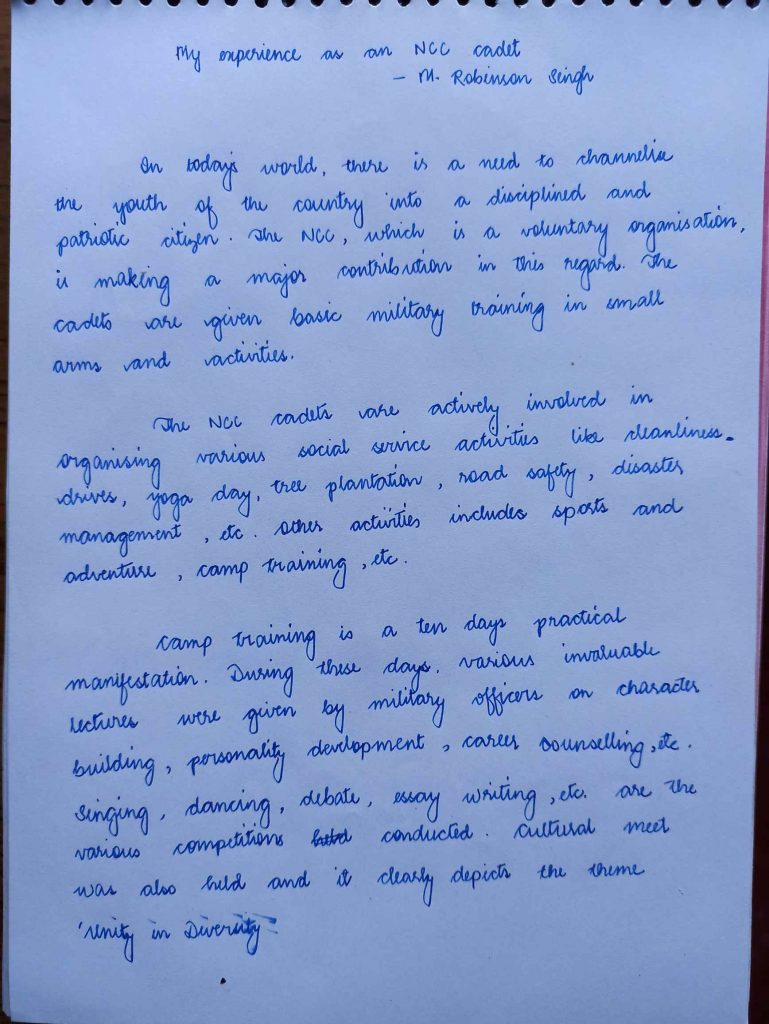 My experience as an NCC cadet
- M. Robinson Singh
In today's world, there is a need to channelise
the youth of the country into a disciplined and
patriotic citizen. The NCC, which is a voluntary organisation,
is making a major contribution in this regard. The
cadets are given basic military training in small
arms and activities.
The NCC cadets are actively involved in
organising various social service activities like cleanliness.
drives, yoga day, tree plantation, road safety, disaster
management, etc. Other activities includes sports and
adventure, camp training, etc.
Camp training is a ten days practical
manifestation. During these days, various invaluable
lectures were given by military officers on character
building, personality development, career counselling, etc.
Singing, dancing, debate, essay writing, etc. are the
various competitions conducted. Cultural meet
was also held and it clearly depicts the theme
'Unity in Diversity'